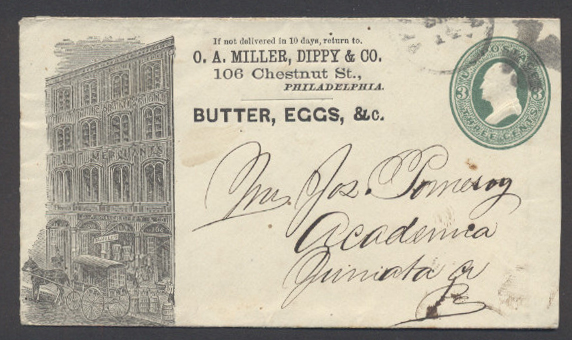 If not delivered in 10 days, return to.
O. A. MILLER, DIPPY & CO.
106 Chestnut St.,
PHILADELPHIA.
BUTTER, EGGS, &c.
U.S. POSTAGE
3 3
THREE CENTS
Mr. Jos. Pomeroy
Academia
Juniata Co
Pa